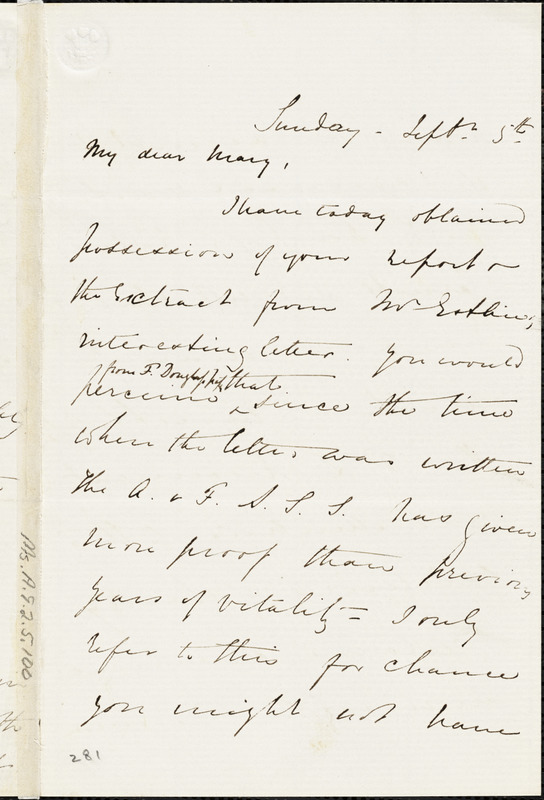 Sunday - Septr. 5th
My dear Mary,
I have today obtained
possession of your report &
the Extract from Mr Estlin's
interesting letter. You would
from F. Douglass' that
perceive ‸ since the time
when the letter was written
the A. & F. A. S. S. has given
more proof than previous
years of vitality - I only
refer to this for chance
you might not have
281
Ms.A.9.2.5.100